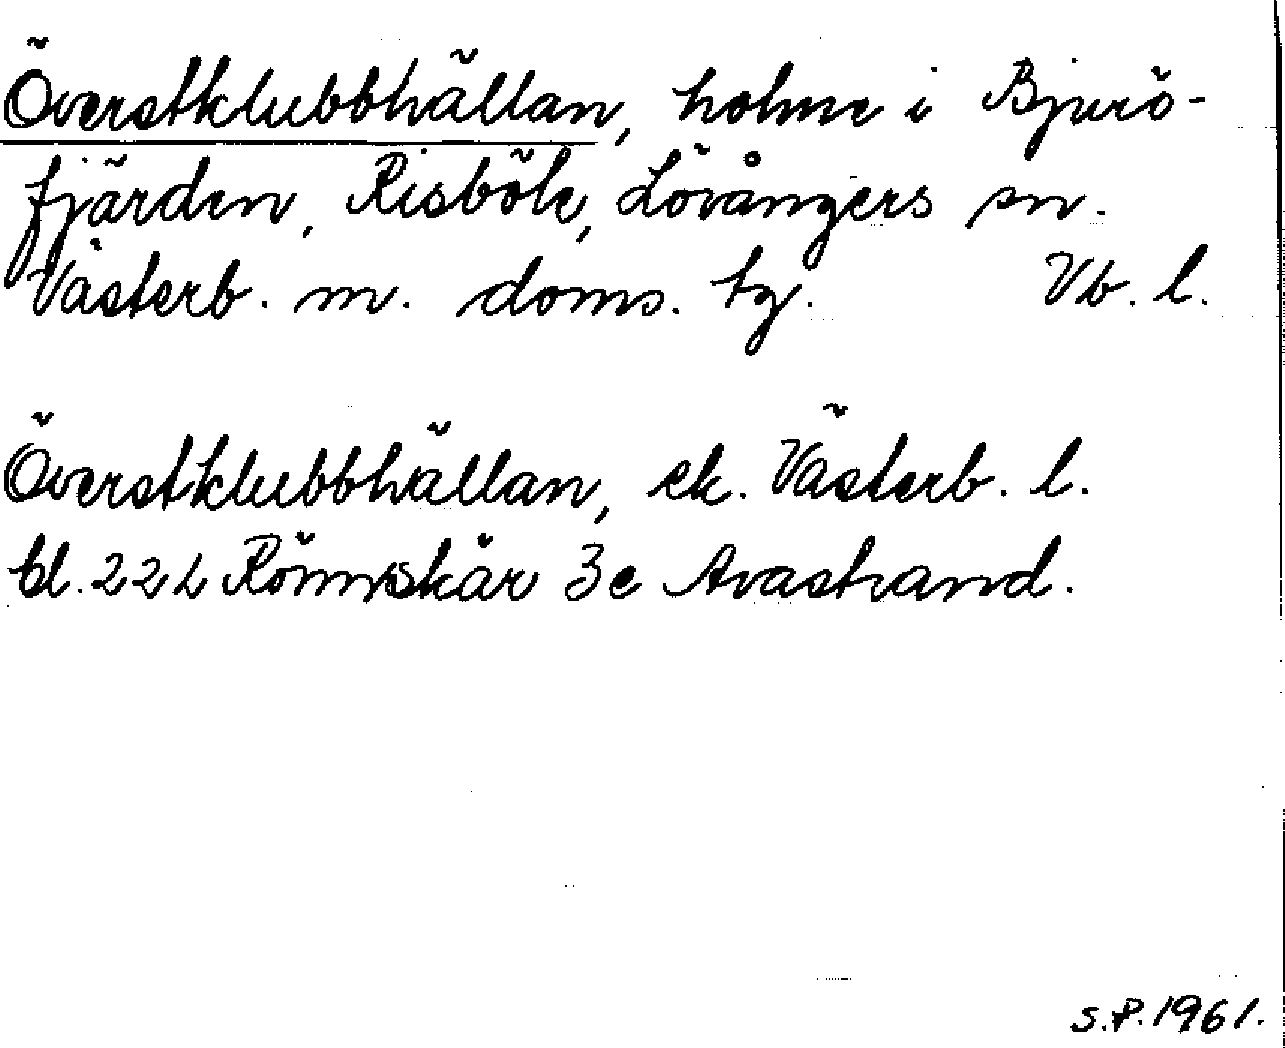 Överstklubbhällan, holme i Bjurö-
fjärden, Risböle, Lövångers sn.
Västerb. m. doms. tg. Vb. l.
Överstklubbhällan, ek. Västerb. l.
bl. 22 L Rönnskär 3e Avastrand.
S.P. 1961.